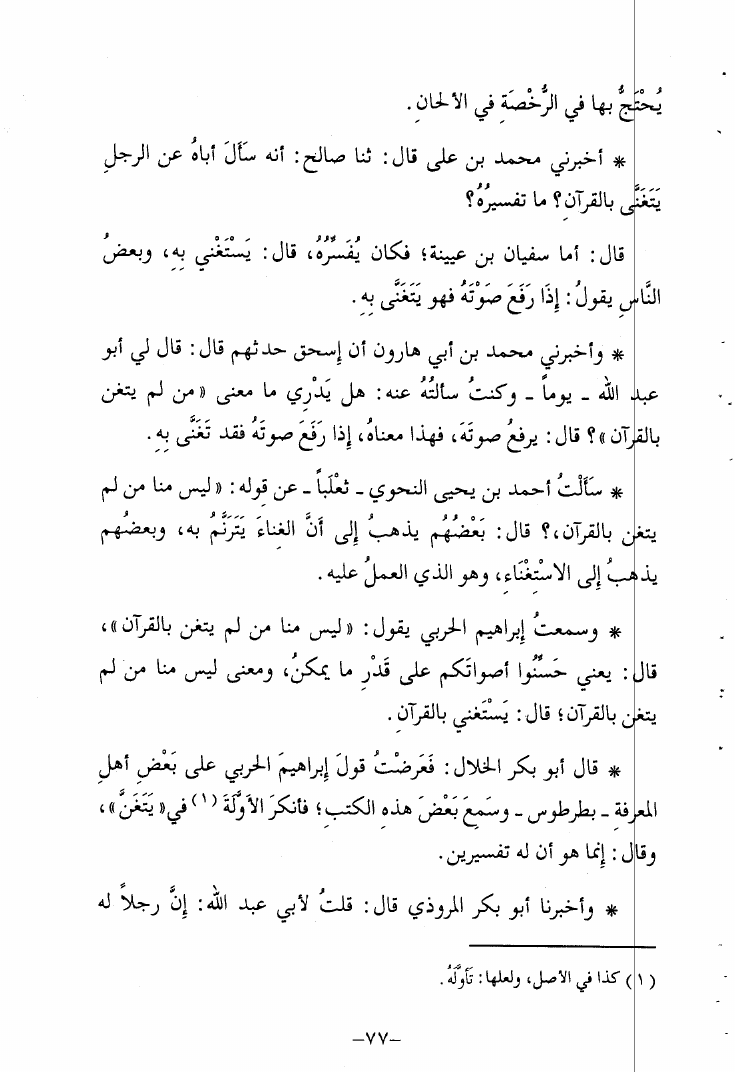 يُحْتَجُّ بها في الرُّخْصَةِ في الألحانِ.
* أخبرني محمد بن على قال: ثنا صالح: أنه سَأَلَ أباهُ عن الرجلِ
يَتَغَنَّى بالقرآنِ؟ ما تفسيرُهُ؟
قال: أما سفيان بن عيينة؛ فكان يُفَسِّرُهُ، قال: يَسْتَغْني بِهِ، وبعضُ
النَّاسِ يقولُ: إِذَا رَفَعَ صَوْتَهُ فهو يَتَغَنَّى بِهِ.
* وأخبرني محمد بن أبي هارون أن إسحق حدثهم قال: قال لي أبو
عبد الله - يوماً - وكنتُ سألتُهُ عنه: هل يَدْرِي ما معنى «من لم يتغن
بالقرآن»؟ قال: يرفعُ صوتَه، فهذا معناهُ، إذا رَفَعَ صوتَهُ فقد تَغَنَّى بِهِ.
* سَأَلْتُ أحمد بن يحيى النحوي - ثعْلَباً - عن قوله: «ليس منا من لم
يتغن بالقرآن،؟ قال: بَعْضُهُم يذهبُ إلى أَنَّ الغناءَ يَتَرَنَّمُ به، وبعضُهم
يذهبُ إلى الاسْتِغْنَاءِ، وهو الذي العملُ عليه.
* وسمعتُ إبراهيم الحربي يقول: «ليس منا من لم يتغن بالقرآن»،
قال: يعني حَسِّنُوا أصواتَكم على قَدْرِ ما يمكنُ، ومعنى ليس منا من لم
يتغن بالقرآن؛ قال: يَسْتَغني بالقرآنِ.
* قال أبو بكر الخلال: فَعَرضْتُ قولَ إبراهيمَ الحربي على بَعْضِ أهلِ
المعرفةِ - بطرطوس - وسَمِعَ بَعْضَ هذهِ الكتبِ؛ فأنكرَ الأوَّلَةَ (١) في «يَتَغَنَّ»،
وقال: إنما هو أن له تفسيرين.
* وأخبرنا أبو بكر المروذي قال: قلتُ لأبي عبد الله: إنَّ رجلاً له
(١) كذا في الأصل، ولعلها: تَأَوَّلَهُ.
-٧٧-